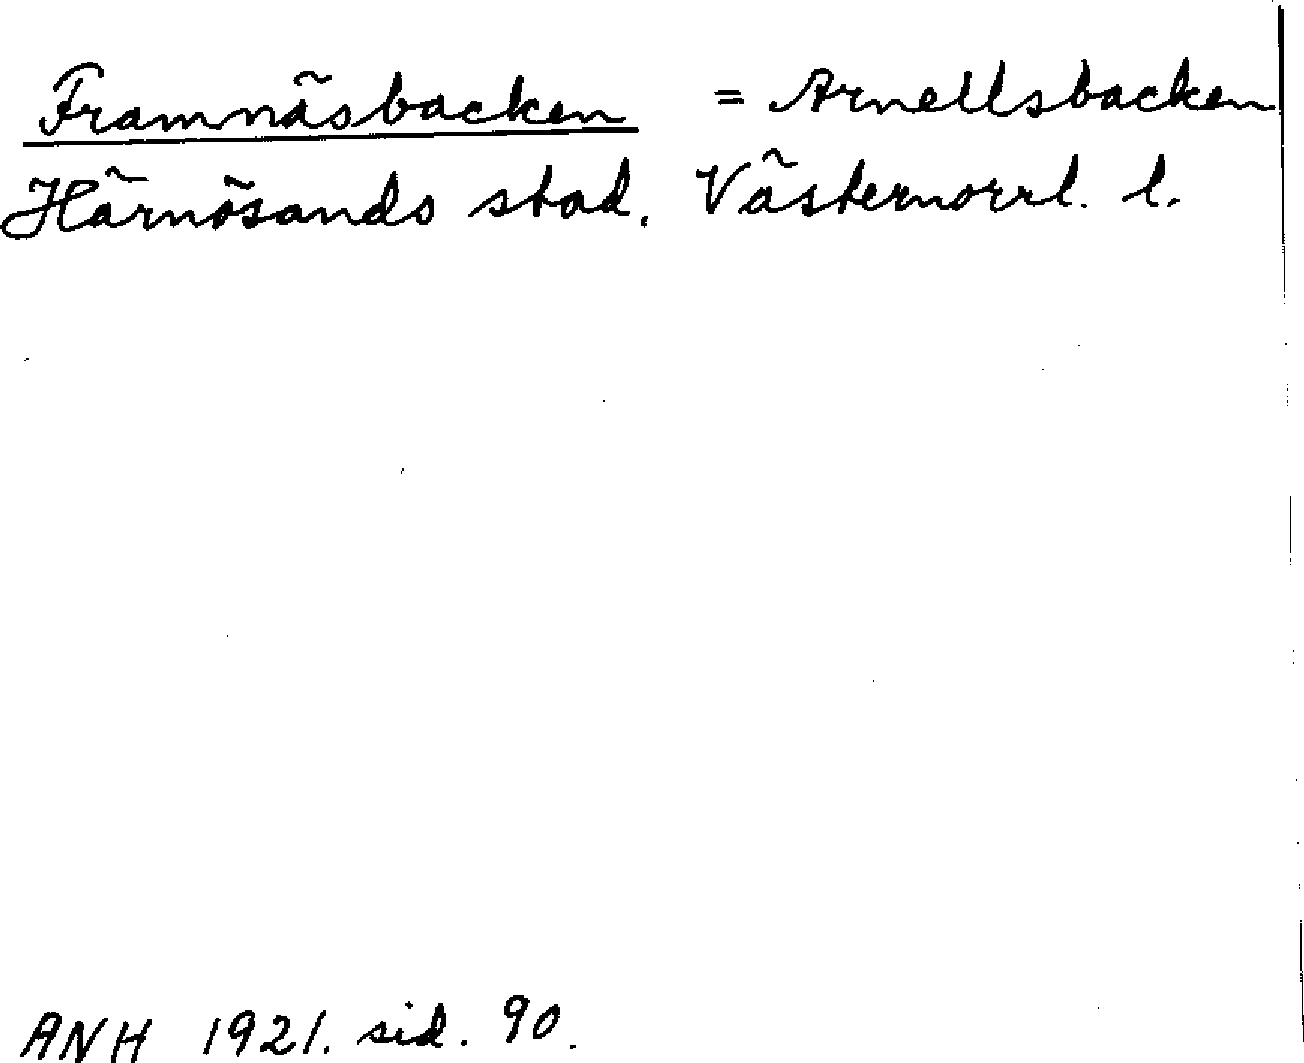 Framnäsbacken = Arnellsbacken
Härnösands stad. Västernorrl. l.
ANH 1921. sid. 90.